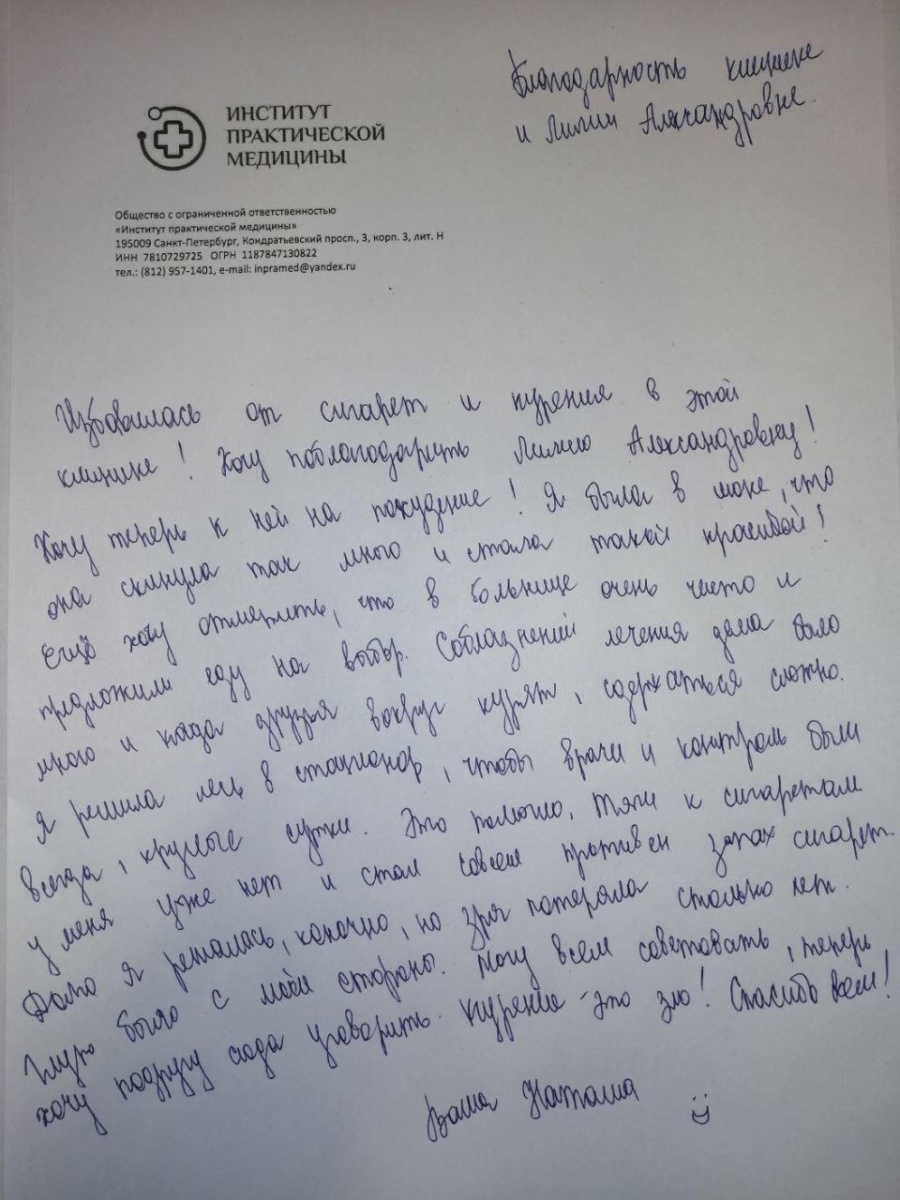 Благодарность клинике
и Лилии Александровне.
ИНСТИТУТ
ПРАКТИЧЕСКОЙ
МЕДИЦИНЫ
Общество с ограниченной ответственностью
«Институт практической медицины»
195009 Санкт-Петербург, Кондратьевский просп., 3, корп. 3, лит. Н
ИНН 7810729725 ОГРН 1187847130822
тел.: (812) 957-1401, e-mail: inpramed@yandex.ru
Избавилась от сигарет и курения в этой
клинике! Хочу поблагодарить Лилию Александровну!
Хочу теперь к ней на похудение! Я была в шоке, что
она скинула так много и стала такой красивой!
Ещё хочу отметить, что в больнице очень чисто и
предложили еду на выбор. Соблазнений лечения дома было
много и когда друзья вокруг курят, сдержаться сложно.
Я решила лечь в стационар, чтобы врачи и контроль были
всегда, круглые сутки. Это помогло. Тяги к сигаретам
у меня уже нет и стал совсем противен запах сигарет.
Долго я решалась, конечно, но зря потеряла столько лет.
Глупо было с моей стороны. Могу всем советовать, теперь
хочу подругу сюда уговорить. Курение - это зло! Спасибо вам!
Ваша Наташа